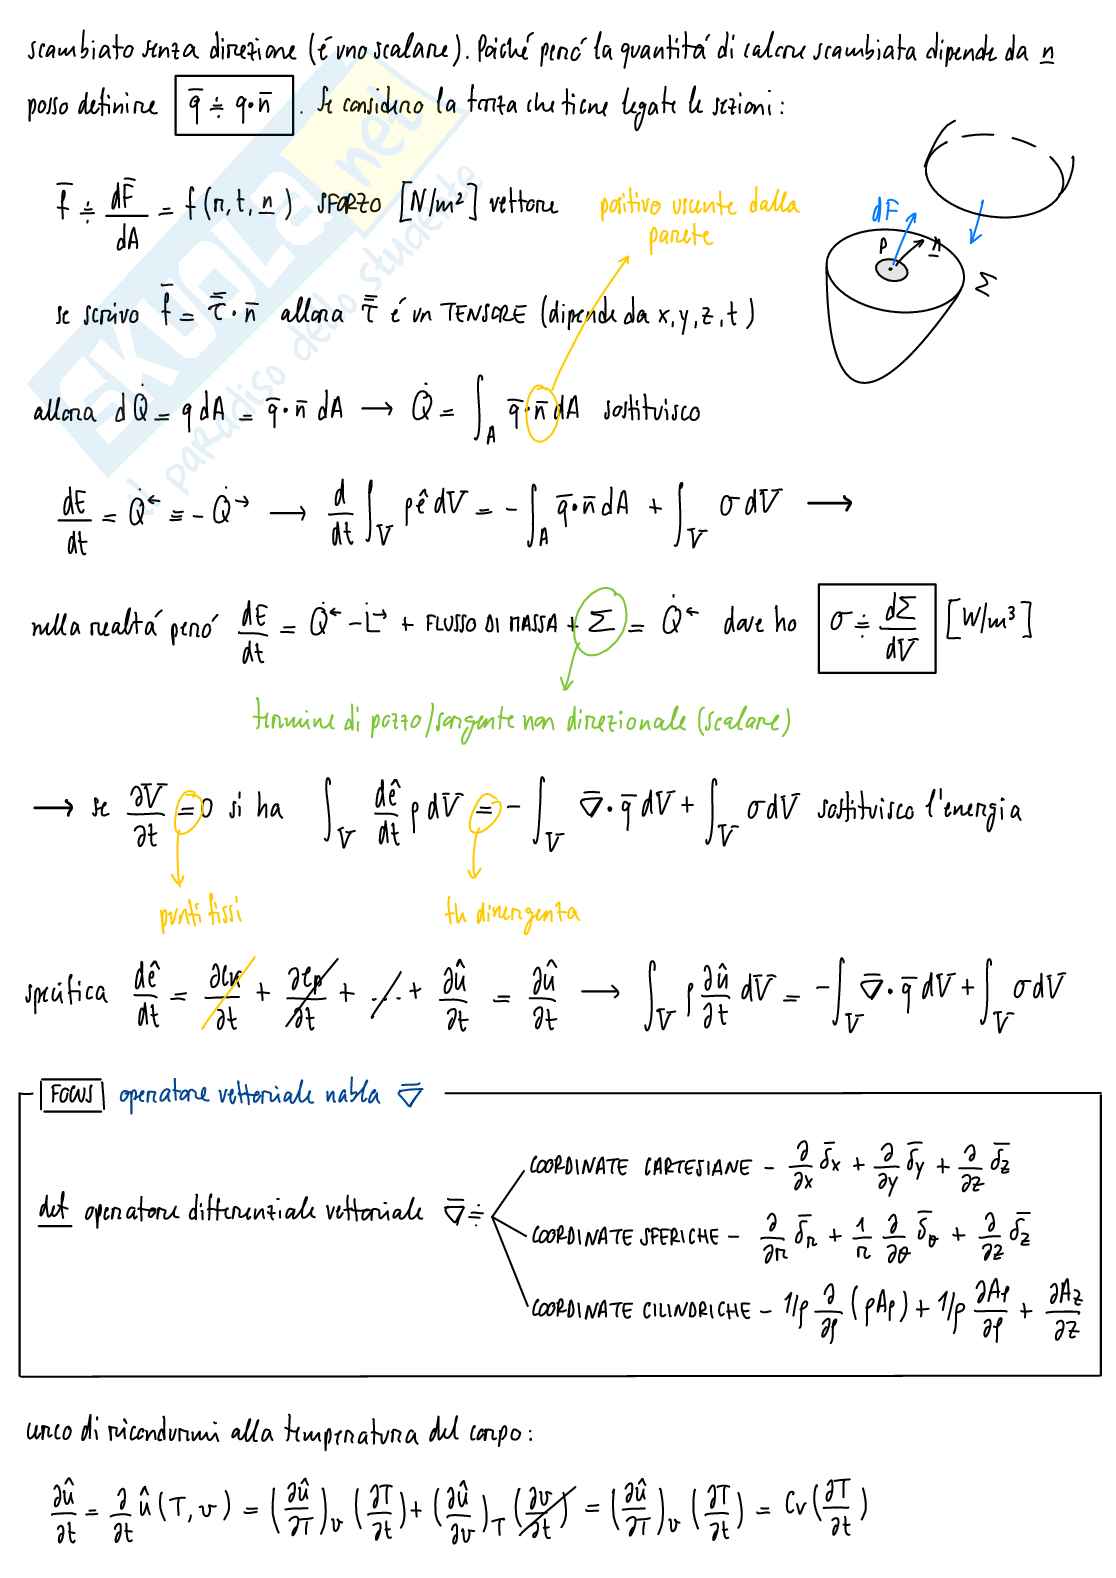 scambiato senza direzione (é uno scalare). Poiché peró la quantitá di calore scambiata dipende da n
posso definire q̄ ≐ q·n̄ . Se considero la forza che tiene legate le sezioni:
f̄ ≐ dF̄/dA = f(r, t, n) SFORZO [N/m²] vettore
positivo uscente dalla parete
dF
p
n
Σ
se scrivo f̄ = τ̿ · n̄ allora τ̿ é un TENSORE (dipende da x, y, z, t)
allora dQ̇ = q dA = q̄ · n̄ dA → Q̇ = ∫_A q̄ · n̄ dA sostituisco
dE/dt = Q̇← ≡ -Q̇→ → d/dt ∫_V ρ ê dV = - ∫_A q̄ · n̄ dA + ∫_V σ dV →
nella realtá peró dE/dt = Q̇← - L̇→ + FLUSSO DI MASSA + Σ = Q̇← dove ho σ ≐ dΣ/dV [W/m³]
termine di pozzo/sorgente non direzionale (scalare)
→ se ∂V/∂t = 0 si ha ∫_V dê/dt ρ dV = - ∫_V ∇̄ · q̄ dV + ∫_V σ dV sostituisco l'energia
punti fissi
th divergenza
specifica dê/dt = ∂ek/∂t + ∂ep/∂t + ... + ∂û/∂t = ∂û/∂t → ∫_V ρ ∂û/∂t dV = - ∫_V ∇̄ · q̄ dV + ∫_V σ dV
FOCUS operatore vettoriale nabla ∇̄
COORDINATE CARTESIANE - ∂/∂x δ̄x + ∂/∂y δ̄y + ∂/∂z δ̄z
def operatore differenziale vettoriale ∇̄ ≐
COORDINATE SFERICHE - ∂/∂r δ̄r + 1/r ∂/∂θ δ̄θ + ∂/∂z δ̄z
COORDINATE CILINDRICHE - 1/ρ ∂/∂ρ (ρAρ) + 1/ρ ∂Aρ/∂ρ + ∂Az/∂z
cerco di ricondurmi alla temperatura del corpo:
∂û/∂t = ∂/∂t û(T, v) = (∂û/∂T)_v (∂T/∂t) + (∂û/∂v)_T (∂v/∂t) = (∂û/∂T)_v (∂T/∂t) = Cv (∂T/∂t)
SKUOLA.net
il paradiso dello studente